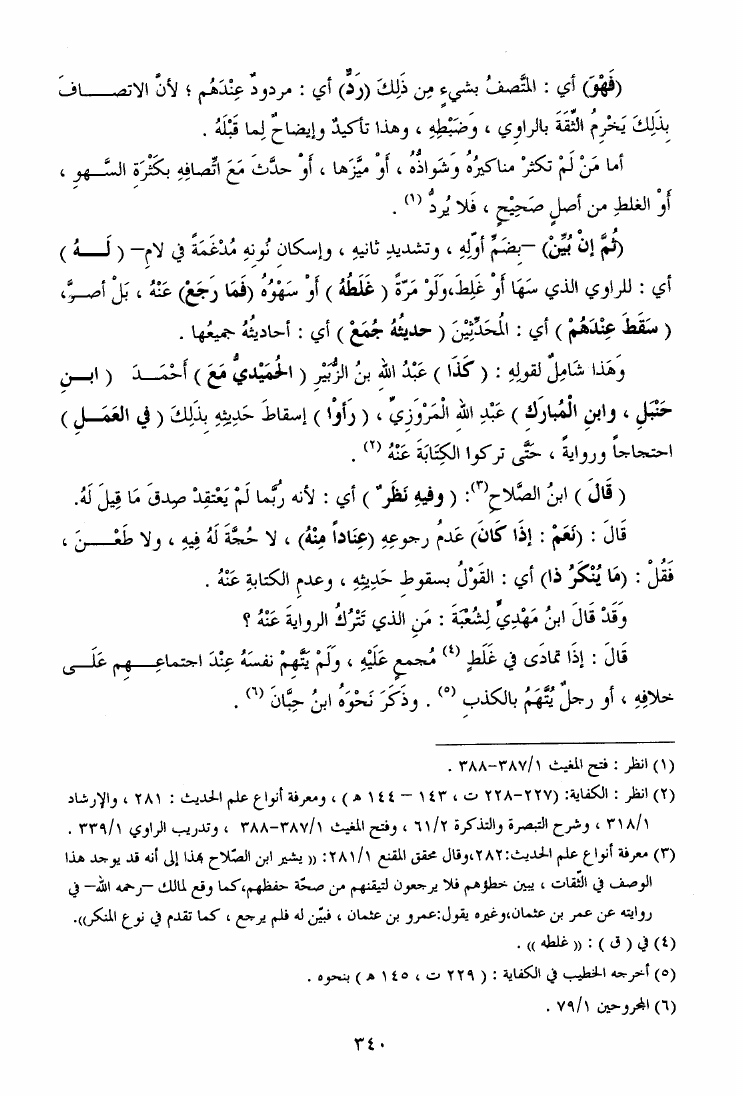 (فَهْوَ) أي : المتَّصفُ بشيءٍ مِن ذَلِكَ (رَدٌّ) أي : مردودٌ عِنْدَهُم ؛ لأنَّ الاتصـــاف
بِذَلِكَ يَخْرِمُ الثِّقَةَ بالراوِي ، وَضَبْطِهِ ، وهذا تأكيدٌ وإيضاحٌ لِما قَبْلَهُ .
أما مَنْ لَمْ تكثرْ مناكيرُهُ وَشواذُّهُ ، أَوْ ميَّزَها ، أَوْ حدَّثَ مَعَ اتِّصافِهِ بكَثْرَةِ السَّـهوِ ،
أَوْ الغلطِ من أصلٍ صَحِيْحٍ ، فَلا يُردُّ (١) .
(ثُمَّ إنْ بُيِّنْ) –بضمِّ أوّلِهِ ، وتشديدِ ثانيهِ ، وإسكانِ نُونِهِ مُدْغمَةً في لامِ– ( لَـــهُ )
أي : للراوي الذي سَهَا أَوْ غَلِطَ،وَلَوْ مَرّةً ( غَلَطُهُ ) أَوْ سَهْوُهُ (فَمَا رَجَعَ) عَنْهُ ، بَلْ أصرَّ،
( سَقَطَ عِنْدَهُمْ ) أي : المُحَدِّثِيْنَ ( حديثُهُ جُمَعْ ) أي : أحاديثُهُ جميعُها .
وَهَذا شامِلٌ لقولِهِ : ( كَذَا ) عَبْدُ اللهِ بنُ الزُّبَيْرِ ( الحُمَيْدِيُّ مَعَ ) أَحْمَــدَ ( ابــنِ
حَنْبَلٍ ، وابنِ الْمُبارَكِ ) عَبْدِ اللهِ الْمَرْوَزِيِّ ، ( رَأَوْا ) إسقاطَ حَدِيثِهِ بذَلِكَ ( في العَمَـلِ )
احتجاجاً وروايةً ، حَتَّى تركوا الكِتَابَةَ عَنْهُ (٢) .
( قَالَ ) ابنُ الصَّلاحِ(٣): ( وفيهِ نَظَرٌ ) أي : لأنه رُبَّما لَمْ يَعْتقِدْ صِدقَ مَا قِيلَ لَهُ.
قَالَ : (نَعَمْ : إذَا كَانَ) عَدمُ رجوعِهِ (عِنَاداً مِنْهُ) ، لا حُجَّةَ لَهُ فِيهِ ، ولا طَعْـــنَ ،
فَقُلْ : (مَا يُنْكَرُ ذا) أي : القَوْلُ بسقوطِ حَدِيثِهِ ، وعدمِ الكتابةِ عَنْهُ .
وَقَدْ قَالَ ابنُ مَهْدِيٍّ لِشُعْبَةَ : مَنِ الذي تَتْرُكُ الروايةَ عَنْهُ ؟
قَالَ : إذَا تمَادَى في غَلَطٍ (٤) مُجمعٍ عَلَيْهِ ، وَلَمْ يَتَّهِمْ نفسَهُ عِنْدَ اجتماعِـــهِم عَلَـــى
خلافِهِ ، أو رجلٌ يُتَّهَمُ بالكذبِ (٥) . وذَكَرَ نَحْوَهُ ابنُ حِبَّانَ (٦) .
(١) انظر : فتح المغيث ٣٨٧/١–٣٨٨ .
(٢) انظر : الكفاية: (٢٢٧–٢٢٨ ت ، ١٤٣ – ١٤٤ ه‍ ) ، ومعرفة أنواع علم الحديث : ٢٨١ ، والإرشاد
٣١٨/١ ، وشرح التبصرة والتذكرة ٦١/٢ ، وفتح المغيث ٣٨٧/١–٣٨٨ ، وتدريب الراوي ٣٣٩/١ .
(٣) معرفة أنواع علم الحديث:٢٨٢،وقال محقق المقنع ٢٨١/١: (( يشير ابن الصّلاح بهذا إلى أنه قد يوجد هذا
الوصف في الثّقات ، يبين خطؤهم فلا يرجعون لتيقنهم من صحّة حفظهم،كما وقع لمالك –رحمه الله– في
روايته عن عمر بن عثمان،وغيره يقول:عمرو بن عثمان ، فبيّن له فلم يرجع ، كما تقدم في نوع المنكر)).
(٤) في ( ق ) : (( غلطه )) .
(٥) أخرجه الخطيب في الكفاية : ( ٢٢٩ ت ، ١٤٥ ه‍ ) بنحوه .
(٦) المجروحين ٧٩/١ .
٣٤٠